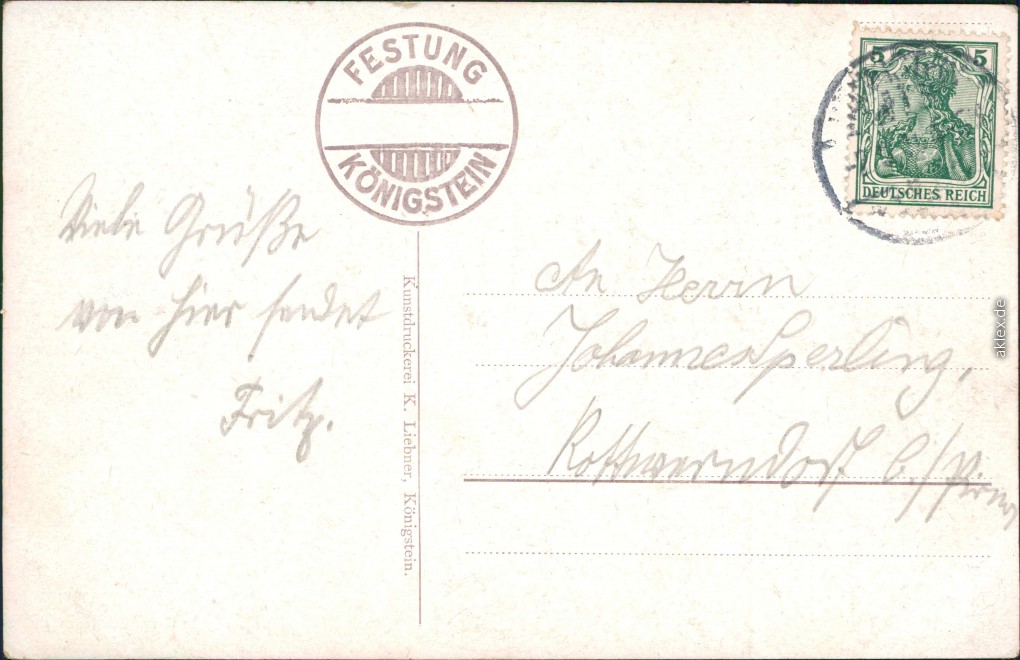 FESTUNG
KÖNIGSTEIN
5 5
DEUTSCHES REICH
Viele Grüße
von hier sendet
Fritz.
Kunstdruckerei K. Liebner, Königstein.
An Herrn
Johannes Sperling,
Rottwerndorf b./Pirna
aklex.de